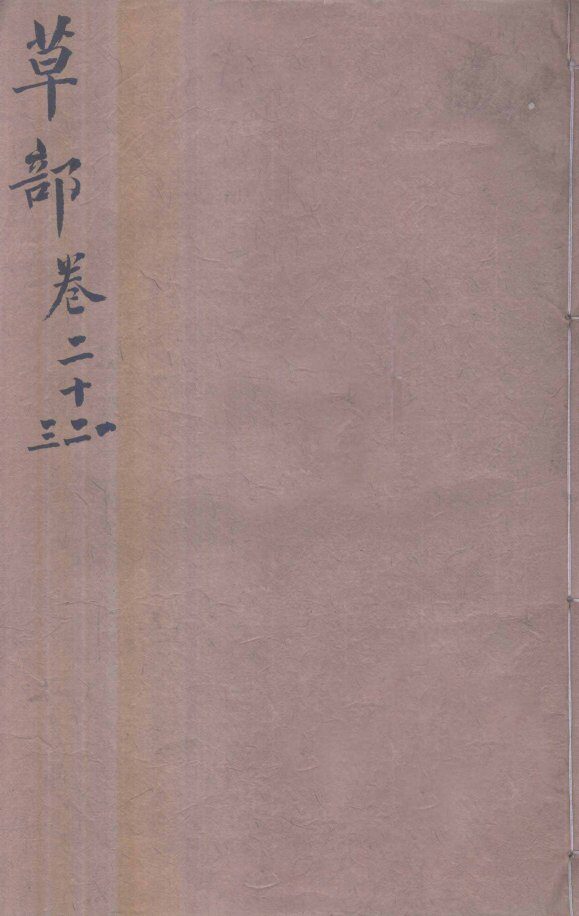 草部卷二十一二三